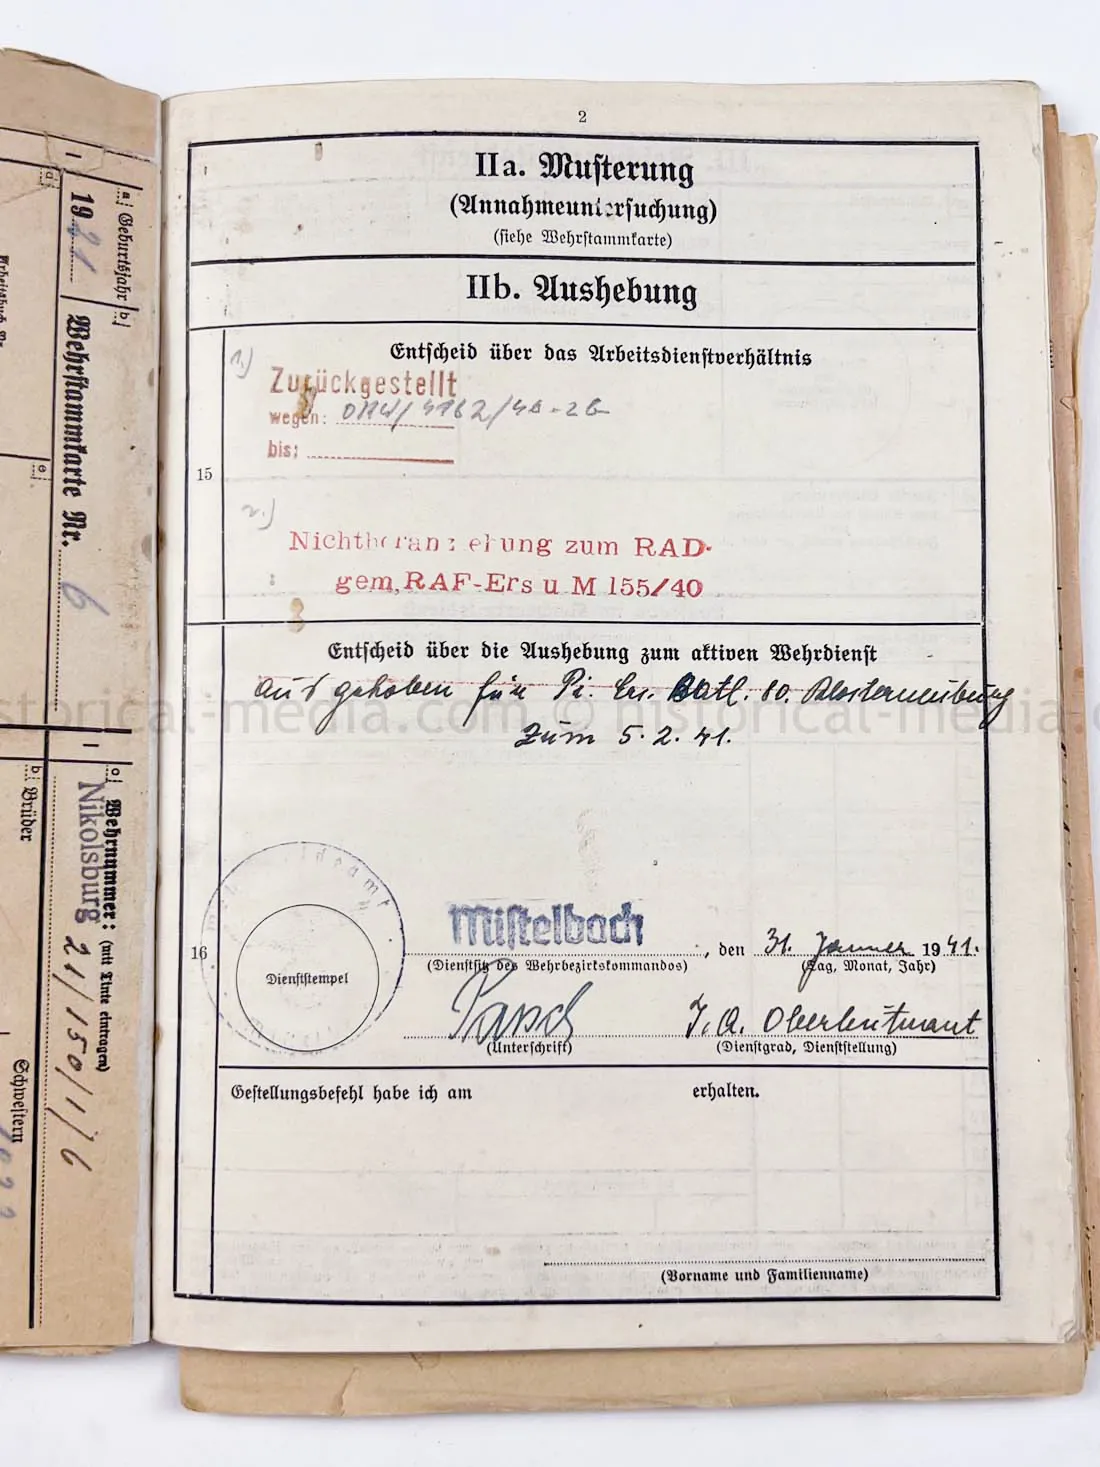 a Geburtsjahr b
1921
Wehrstammkarte Nr. 6
e
Wehrnummer: (mit Tinte eintragen)
Nikolsburg 21/150/1/6
b Brüder
Schwestern
2
IIa. Musterung
(Annahmeuntersuchung)
(siehe Wehrstammkarte)
IIb. Aushebung
Entscheid über das Arbeitsdienstverhältnis
1.)
Zurückgestellt
wegen: OKW/4162/40-2b
bis:
15
2.)
Nichtheranziehung zum RAD
gem, RAF-Ers u M 155/40
Entscheid über die Aushebung zum aktiven Wehrdienst
Ausgehoben für Pi. Ers. Batl. 80. Klosterneuburg
zum 5.2.41.
historical-media.com © historical-media.com
16
Dienststempel
Mistelbach, den 31. Jänner 1941.
(Dienstsitz des Wehrbezirkskommandos) (Tag, Monat, Jahr)
I.A. Oberleutnant
(Unterschrift) (Dienstgrad, Dienststellung)
Gestellungsbefehl habe ich am erhalten.
(Vorname und Familienname)